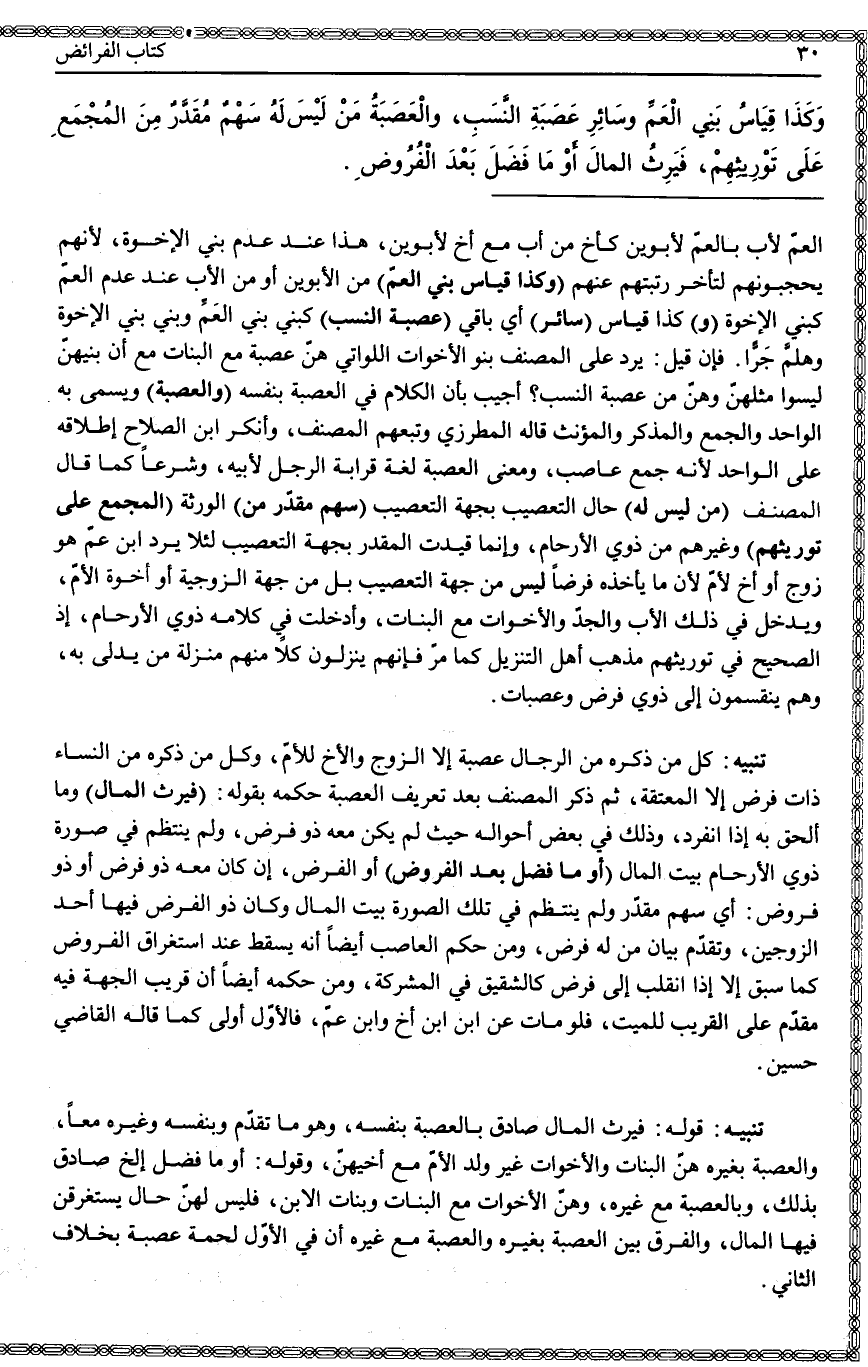 ٣٠ كتاب الفرائض
وَكَذَا قِيَاسُ بَنِي الْعَمِّ وسَائِرِ عَصَبَةِ النَّسَبِ، والْعَصَبَةُ مَنْ لَيْسَ لَهُ سَهْمٌ مُقَدَّرٌ مِنَ المُجْمَعِ
عَلَى تَوْرِيثِهِمْ، فَيَرِثُ المالَ أَوْ مَا فَضَلَ بَعْدَ الْفُرُوضِ.
العمّ لأب بالعمّ لأبوين كأخ من أب مع أخ لأبوين، هذا عند عدم بني الإخوة، لأنهم
يحجبونهم لتأخر رتبتهم عنهم (وكذا قياس بني العمّ) من الأبوين أو من الأب عند عدم العمّ
كبني الإخوة (و) كذا قياس (سائر) أي باقي (عصبة النسب) كبني بني العَمِّ وبني بني الإخوة
وهلمَّ جَرًّا. فإن قيل: يرد على المصنف بنو الأخوات اللواتي هنّ عصبة مع البنات مع أن بنيهنّ
ليسوا مثلهنّ وهنّ من عصبة النسب؟ أجيب بأن الكلام في العصبة بنفسه (والعصبة) ويسمى به
الواحد والجمع والمذكر والمؤنث قاله المطرزي وتبعهم المصنف، وأنكر ابن الصلاح إطلاقه
على الواحد لأنه جمع عاصب، ومعنى العصبة لغة قرابة الرجل لأبيه، وشرعاً كما قال
المصنف (من ليس له) حال التعصيب بجهة التعصيب (سهم مقدّر من) الورثة (المجمع على
توريثهم) وغيرهم من ذوي الأرحام، وإنما قيدت المقدر بجهة التعصيب لئلا يرد ابن عمّ هو
زوج أو أخ لأمّ لأن ما يأخذه فرضاً ليس من جهة التعصيب بل من جهة الزوجية أو أخوة الأمّ،
ويدخل في ذلك الأب والجدّ والأخوات مع البنات، وأدخلت في كلامه ذوي الأرحام، إذ
الصحيح في توريثهم مذهب أهل التنزيل كما مرّ فإنهم ينزلون كلاً منهم منزلة من يدلى به،
وهم ينقسمون إلى ذوي فرض وعصبات.
تنبيه: كل من ذكره من الرجال عصبة إلا الزوج والأخ للأمّ، وكل من ذكره من النساء
ذات فرض إلا المعتقة، ثم ذكر المصنف بعد تعريف العصبة حكمه بقوله: (فيرث المال) وما
ألحق به إذا انفرد، وذلك في بعض أحواله حيث لم يكن معه ذو فرض، ولم ينتظم في صورة
ذوي الأرحام بيت المال (أو ما فضل بعد الفروض) أو الفرض، إن كان معه ذو فرض أو ذو
فروض: أي سهم مقدّر ولم ينتظم في تلك الصورة بيت المال وكان ذو الفرض فيها أحد
الزوجين، وتقدّم بيان من له فرض، ومن حكم العاصب أيضاً أنه يسقط عند استغراق الفروض
كما سبق إلا إذا انقلب إلى فرض كالشقيق في المشركة، ومن حكمه أيضاً أن قريب الجهة فيه
مقدّم على القريب للميت، فلو مات عن ابن ابن أخ وابن عمّ، فالأوّل أولى كما قاله القاضي
حسين.
تنبيه: قوله: فيرث المال صادق بالعصبة بنفسه، وهو ما تقدّم وبنفسه وغيره معاً،
والعصبة بغيره هنّ البنات والأخوات غير ولد الأمّ مع أخيهنّ، وقوله: أو ما فضل إلخ صادق
بذلك، وبالعصبة مع غيره، وهنّ الأخوات مع البنات وبنات الابن، فليس لهنّ حال يستغرقن
فيها المال، والفرق بين العصبة بغيره والعصبة مع غيره أن في الأوّل لحمة عصبة بخلاف
الثاني.